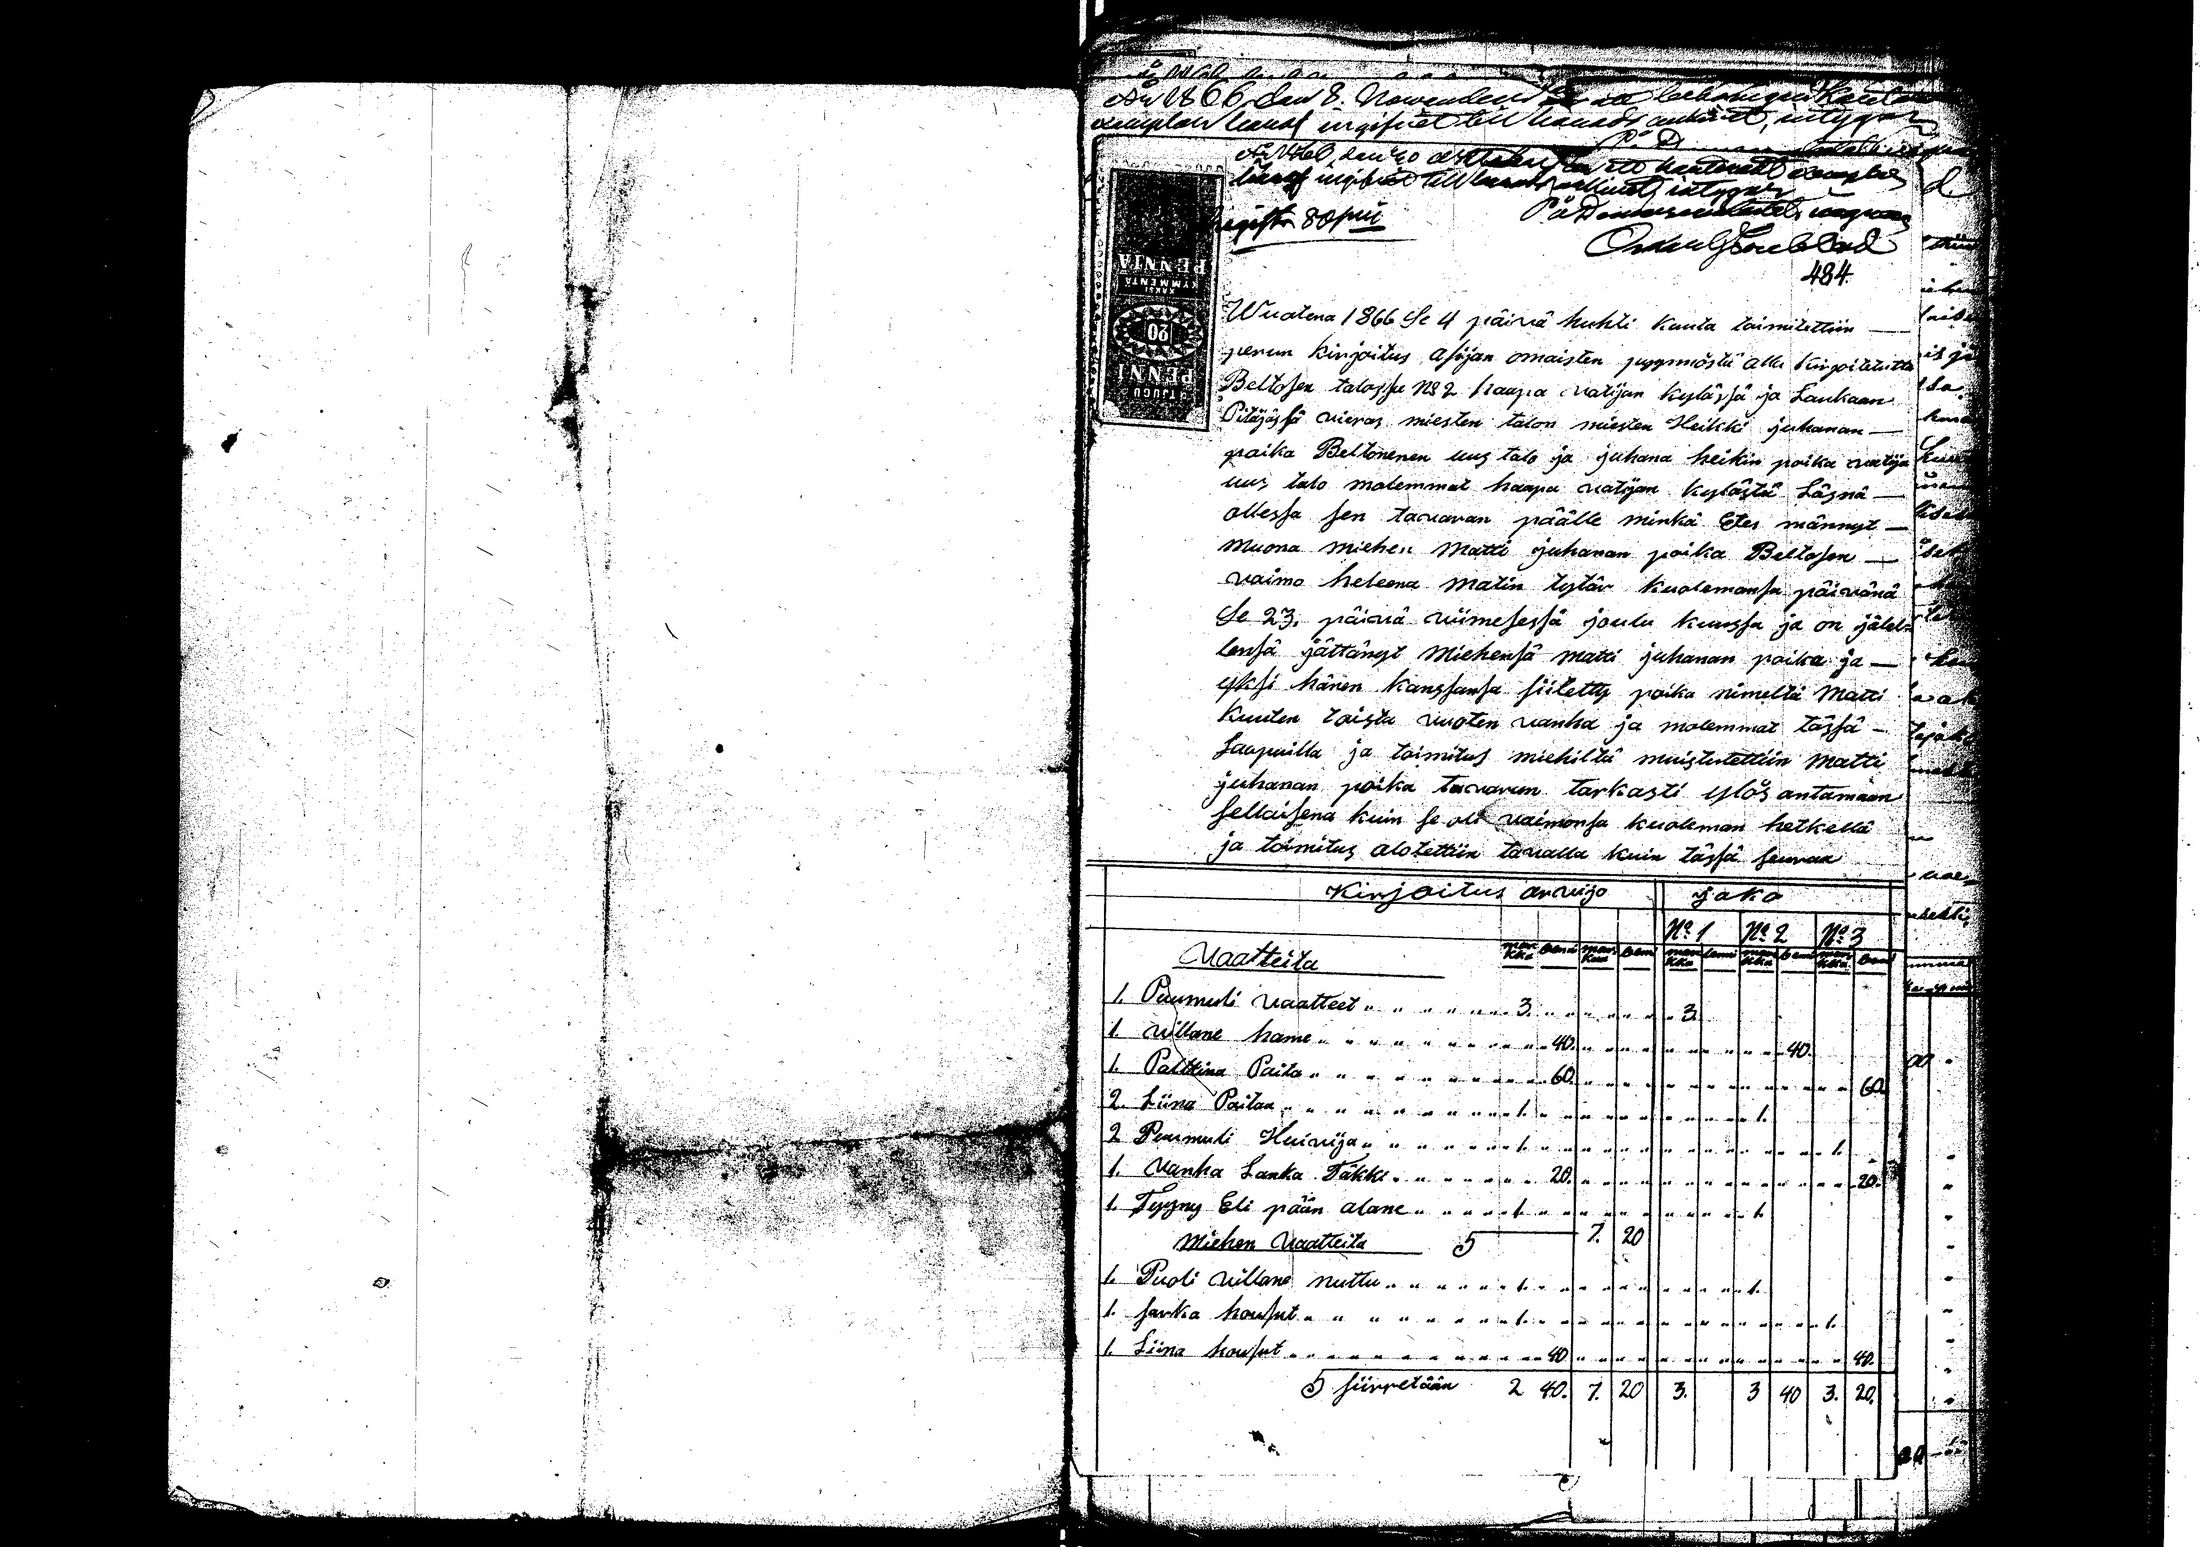 År 1866, den 8. November
exemplar häraf ingifvet till härads arkivet, intygar
År 1866, den 20 ett karteradt exemplar
häraf ingifvet till härads arkivet, intygar
På Domare embetets vägnar
80 pni
484.
KAKSI
KYMMENTÄ
PENNIÄ
20
TJUGU
PENNI
Wuotena 1866 Se 4 päivä huhti kuuta toimitettiin —
perun kirjoitus asijan omaisten pyynnöstä alla kirjoitetutta
Beltosen talossa No 2 haapa vatijan kylässä ja Laukaan
Pitäjässä vieras miesten talon miesten Heikki juhanan —
poika Beltonenen uus talo ja juhana heikin poika vatija
uus talo molemmat haapa vatijan kylästä Läsnä —
ollessa sen tavaran päälle minkä Etes männyt —
muona miehen Matti juhanan poika Beltosen —
vaimo heleena matin tytär kuolemansa päivänä
Se 23. päivä viimesessä joulu kuussa ja on jälel-
lensä jättänyt Miehensä matti juhanan poika ja —
yksi hänen kanssansa siitetty poika nimeltä Matti
kuuten toista vuoten vanha ja molemmat tässä —
saapuilla ja toimitus miehiltä muistutettiin Matti
juhanan poika tavaran tarkasti ylös antamaan
sellaisena kuin se oli vaimonsa kuoleman hetkellä
ja toimitus alotettiin tavalla kuin tässä seuraa
Kirjoitus arvijo jako
No 1 No 2 No 3
Vaatteita markka penni markka penni markka penni markka penni markka penni
1. Puumuli vaatteet 3. 3.
1. villane hame 40. 40.
1. Palttina Paita 60. 60.
2. Liina Paitaa 1. 1.
2 Puumuli Huivija 1. 1.
1. Vanha Lanka Täkki 20. 20.
1. Tyyny Eli pään alane 1. 1.
Miehen Vaatteita S 7. 20
1. Puoli villane nuttu 1. 1.
1. sarka housut 1. 1.
1. Liina housut 40 40.
S siirretään 2 40. 7. 20 3. 3 40 3. 20.